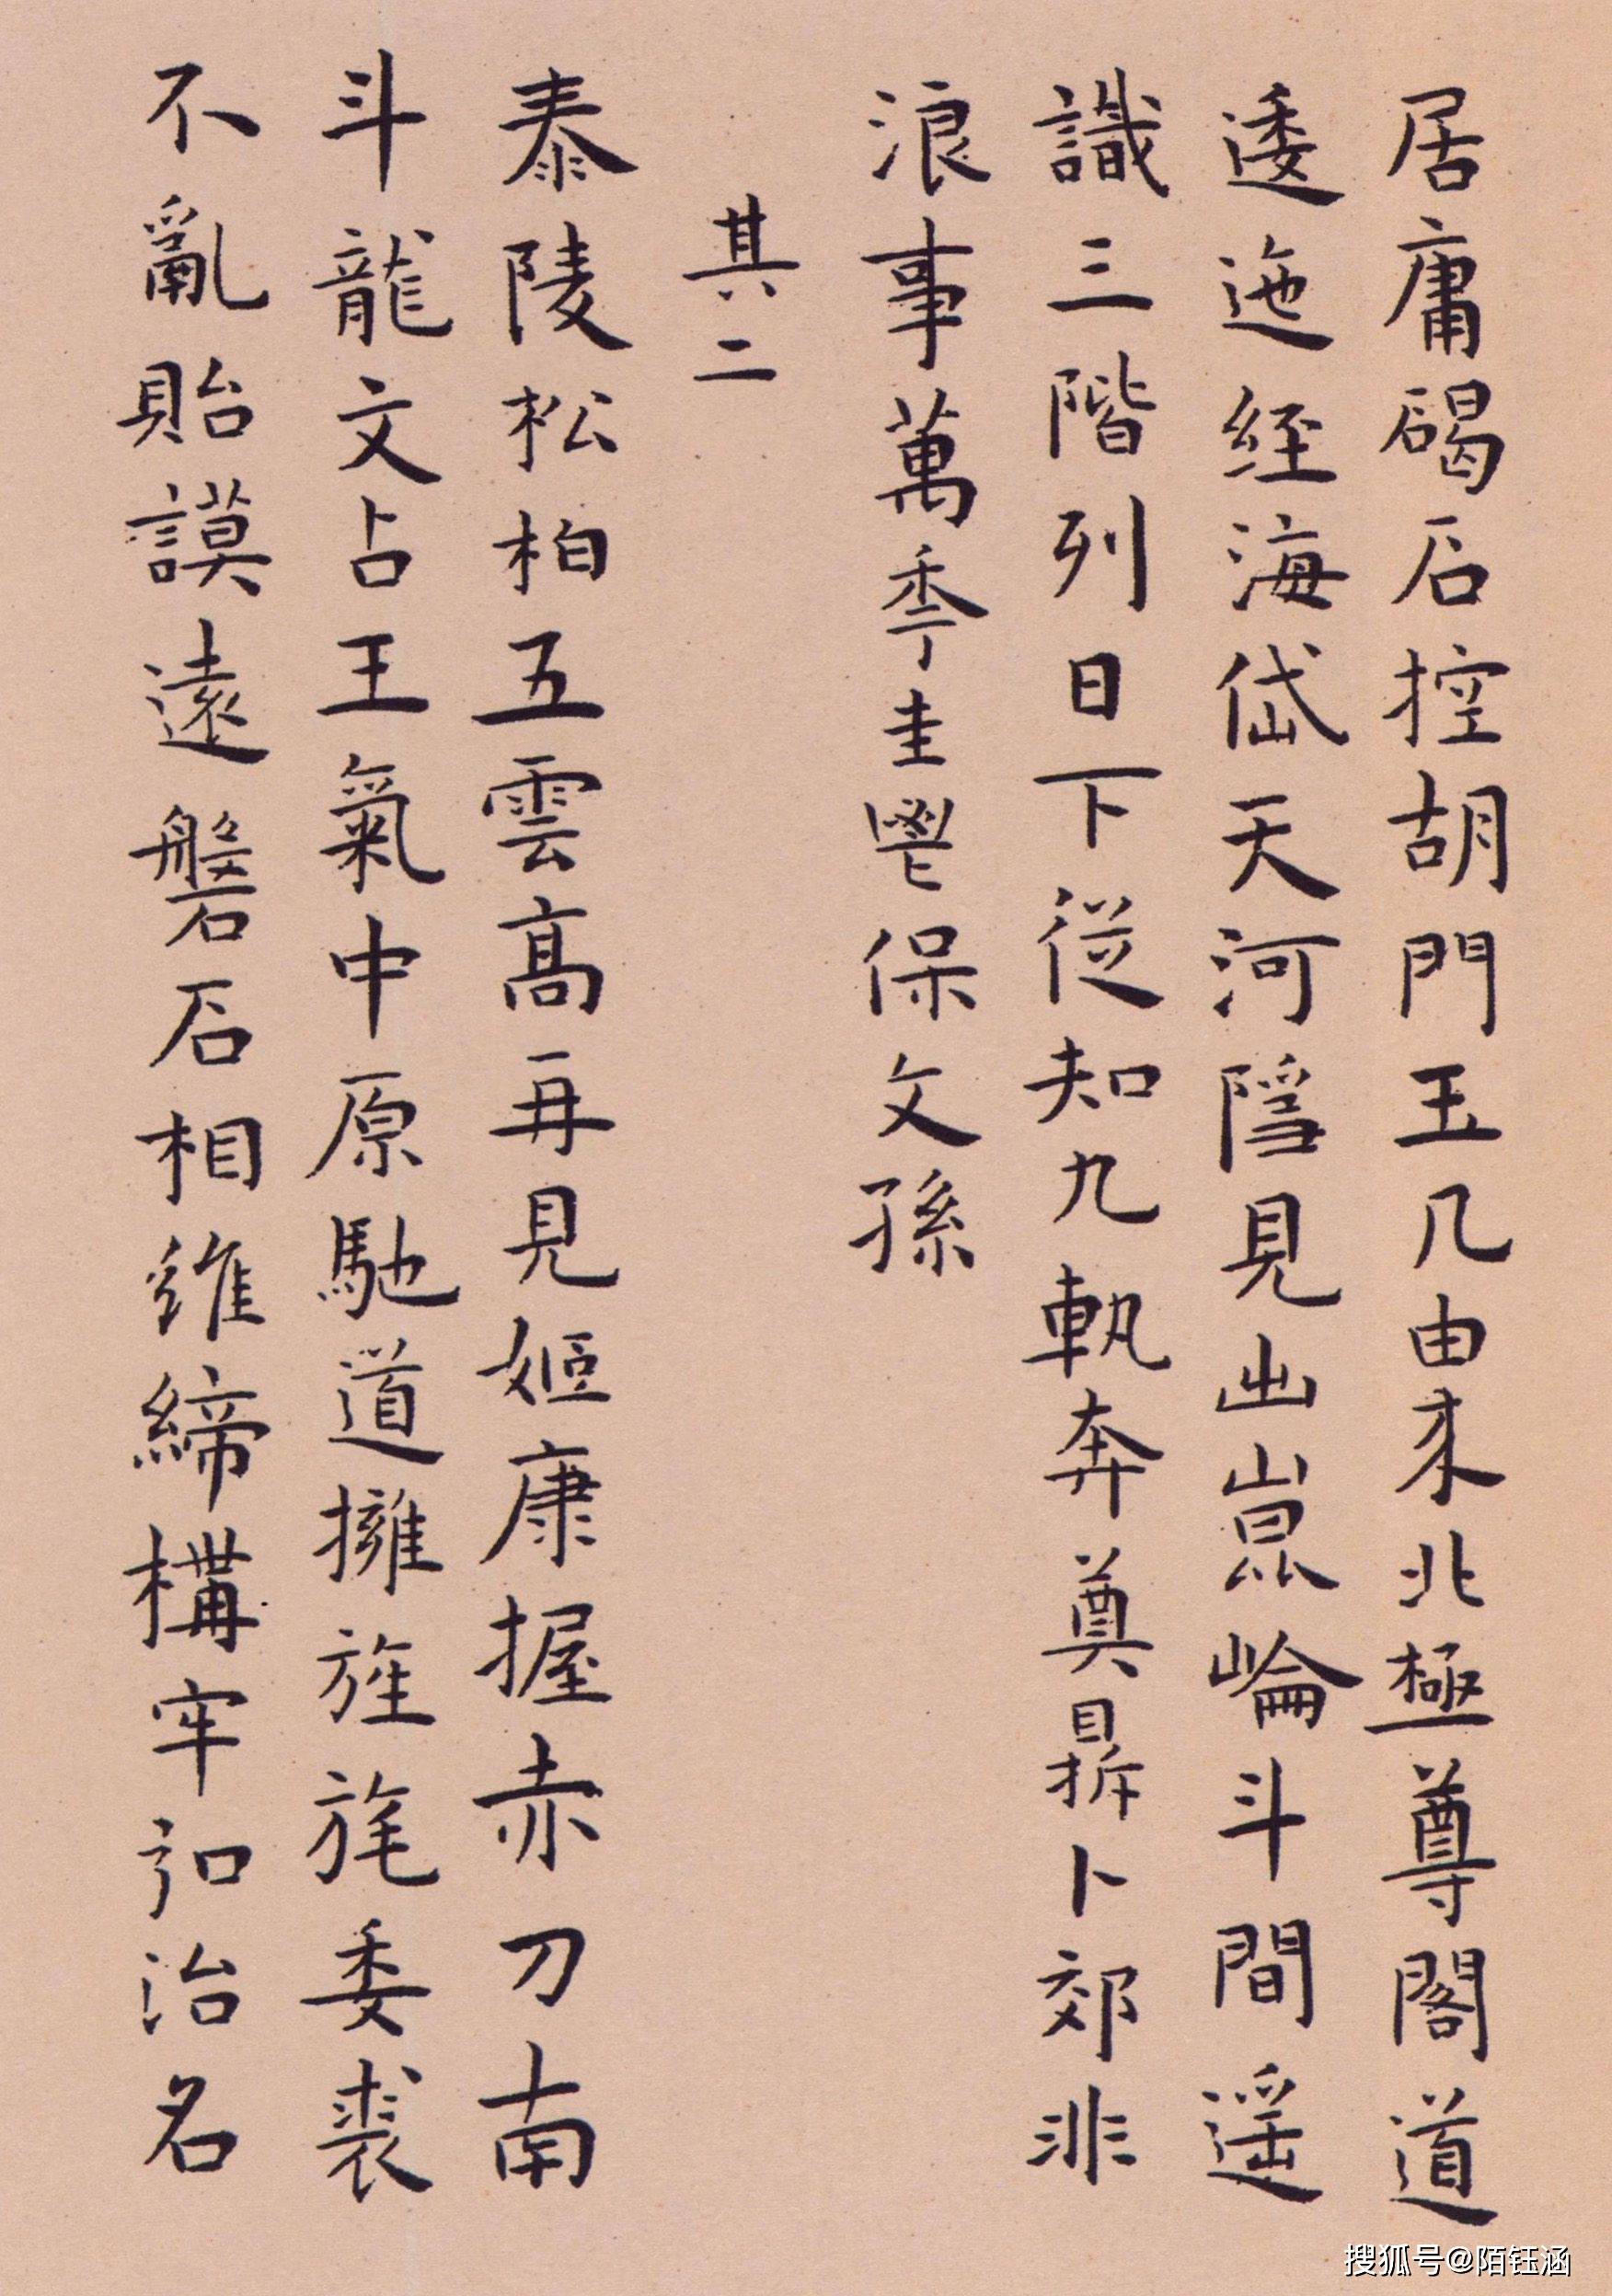 居庸碣石控胡門玉几由来北極尊閣道
逶迤經海岱天河隱見出崑崙斗間遥
識三階列日下從知九軌奔奠鼎卜郊非
浪事萬季圭鬯保文孫
其二
泰陵松柏五雲高再見姬康握赤刀南
斗龍文占王氣中原馳道擁旌旄委裘
不亂貽謨遠磐石相維締構牢弘治名
搜狐号@陌钰涵